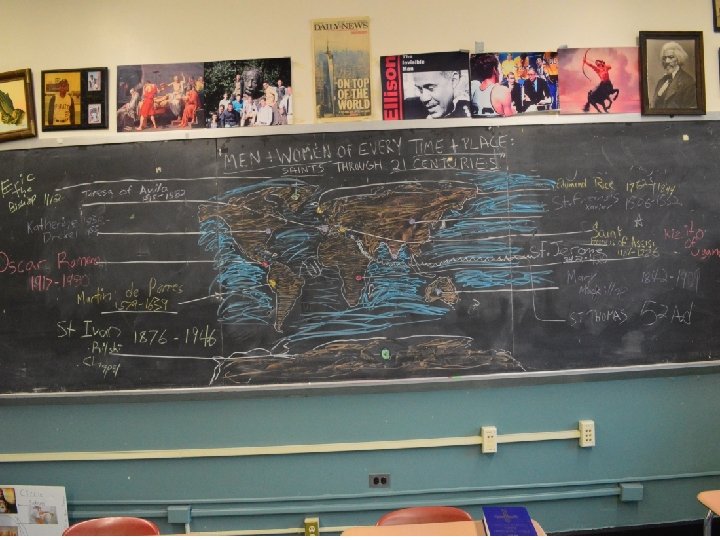 DAILY NEWS
ON TOP
OF THE
WORLD
Ellison
The
Invisible
Man
"MEN + WOMEN OF EVERY TIME + PLACE:
SAINTS THROUGH 21 CENTURIES"
Eric
the
Bishop
Teresa of Avila
Katherine
Drexel
Oscar Romero
1917-1980
Martin de Porres
1579-1639
St Ivan 1876-1946
Chapel
Edmund Rice
St. Francis
Xavier
1506-1552
Saint
Francis of Assisi
St. Jerome
Kizito
of
Uganda
Mary
Mackillop
1842-1909
ST THOMAS 52 Ad